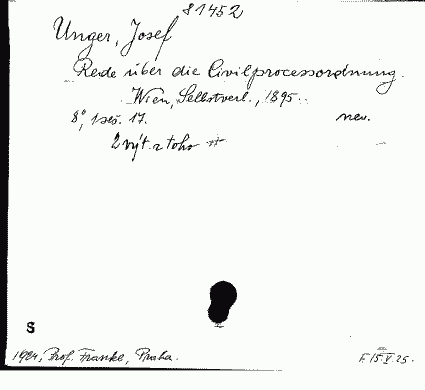 81452
Unger, Josef
Rede über die Civilprocessordnung.
Wien, Selbstverl., 1895.
8°, 1 seš. 17. nev.
2 výt. z toho
S
1924, Prof. Frankl, Praha. F. 15.V.25.